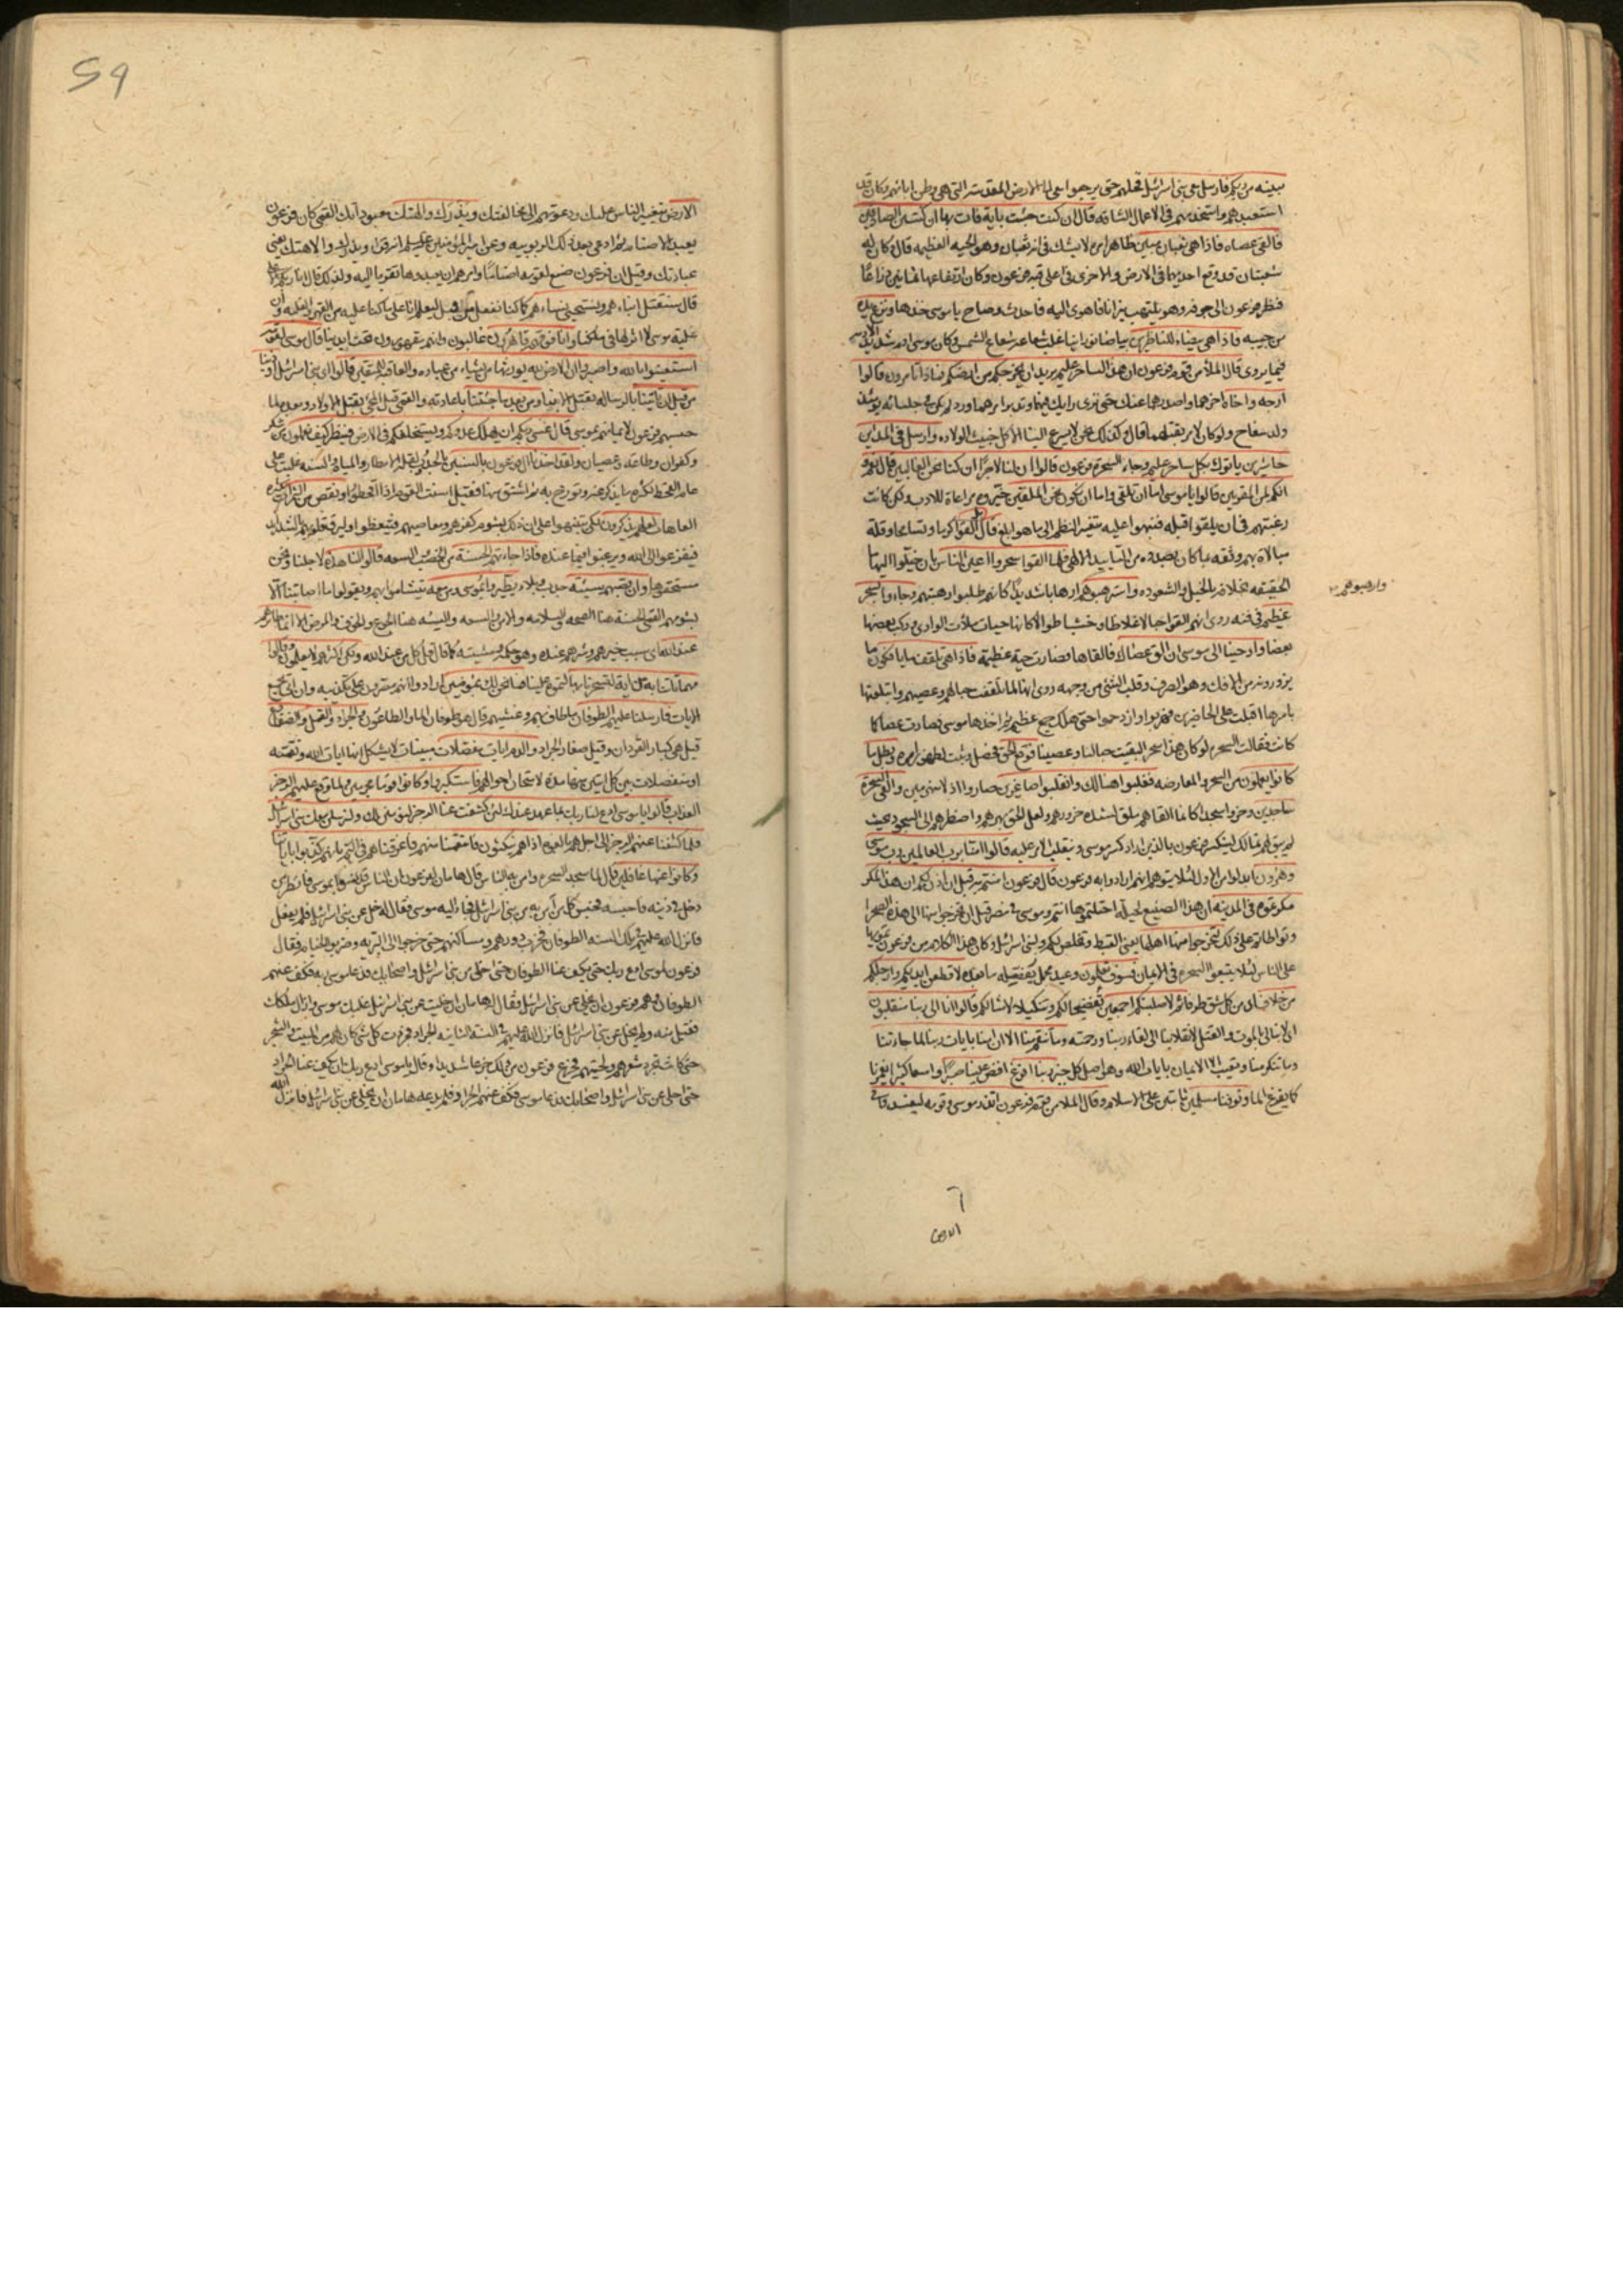 ببينة من ربكم فارسل معي بني اسرائيل فخلهم حتى يرجعوا معي الى الارض المقدسة التي هي وطن ابائهم وكان قد
استعبدهم واستخدمهم في الاعمال الشاقة قال ان كنت جئت باية فات بها ان كنت من الصادقين
فالقى عصاه فاذا هي ثعبان مبين ظاهر امره لا يشك في انه ثعبان وهو الحية العظيمة قال وكان له
شعبتان قد وقع احديهما في الارض والاخرى في اعلى قبة فرعون وكان ارتفاعها ثمانين ذراعا
فنظر فرعون الى جوفه وهو يلتهب نيرانا فاهوى اليه فاحدث وصاح يا موسى خذها ونزع يده
من جيبه فاذا هي بيضاء للناظرين بياضا نورانيا غلب شعاعه شعاع الشمس وكان موسى ادم شديد الادمة
فيما يروى قال الملأ من قوم فرعون ان هذا لساحر عليم يريد ان يخرجكم من ارضكم فماذا تأمرون قالوا
ارجه واخاه اخرهما واصدرهما عنك حتى ترى رأيك فيهما وتدبر امرهما ورد لم يكن في جلسائه يومئذ
ولد سفاح ولو كان لامر بقتلهما قال وكذلك نحن لا يسرع الينا الا كل خبيث الولادة وارسل في المداين
حاشرين يأتوك بكل ساحر عليم وجاء السحرة فرعون قالوا ان لنا لاجرا ان كنا نحن الغالبين قال نعم و
انكم لمن المقربين قالوا يا موسى اما ان تلقي واما ان نكون نحن الملقين خيروه مراعاة للادب ولكن كانت
رغبتهم في ان يلقوا قبله فنبهوا عليه بتغيير النظم الى ما هو ابلغ قال بل القوا كرما وتسامحا وقلة
مبالاة بهم وثقة بما كان بصدده من التأييد الالهي فلما القوا سحروا اعين الناس بان خيلوا اليها ما
الحقيقة بخلافه بالحيل والشعوذة واسترهبوهم ارهابا شديدا كانهم طلبوا رهبتهم وجاءوا بسحر
وارهبوهم
عظيم في فنه روي انهم القوا حبالا غلاظا وخشبا طوالا كانها حيات ملأت الوادي وركب بعضها
بعضا واوحينا الى موسى ان الق عصاك فالقاها فصارت حية عظيمة فاذا هي تلقف ما يأفكون ما
يزورونه من الافك وهو الصرف وقلب الشيء من وجهه روي انها لما تلقفت حبالهم وعصيهم وابتلعتها
باسرها اقبلت على الحاضرين فهربوا وازدحموا حتى هلك جمع عظيم ثم اخذها موسى فصارت عصا كما
كانت فقالت السحرة لو كان هذا سحرا لبقيت حبالنا وعصينا فوقع الحق فحصل وثبت لظهور امره وبطل ما
كانوا يعملون من السحر والمعارضة فغلبوا هنالك وانقلبوا صاغرين صاروا اذلاء منهزمين والقي السحرة
ساجدين وخروا سجدا كانما القاهم ملق لشدة خرورهم ولعل الحق بهرهم واضطرهم الى السجود بحيث
لم يبق لهم تمالك لينكسر فرعون بالذين اراد كسر موسى وينقلب الامر عليه قالوا امنا برب العالمين رب موسى
وهرون ابدلوا من الاول لئلا يتوهم انهم ارادوا به فرعون قال فرعون امنتم به قبل ان اذن لكم ان هذا لمكر
مكرتموه في المدينة ان هذا الصنيع لحيلة احتلتموها انتم وموسى في مصر قبل ان تخرجوا منها الى هذه الصحراء
وتواطأتم على ذلك لتخرجوا منها اهلها يعني القبط وتخلص لكم ولبني اسرائيل وكان هذا الكلام من فرعون تمويها
على الناس لئلا يتبعوا السحرة في الايمان فسوف تعلمون وعيد مجمل يفصله ما بعده لاقطعن ايديكم وارجلكم
من خلاف اي من كل شق طرفا ثم لاصلبنكم اجمعين تفضيحا لكم وتنكيلا لامثالكم قالوا انا الى ربنا منقلبون
اي لابد لنا بالموت والقتل الانقلاب الى لقاء ربنا ورحمته وما تنقم منا الا ان امنا بايات ربنا لما جاءتنا
وما تنكر منا وتعيب الا الايمان بايات الله وهو اصل كل خير ربنا افرغ افض علينا صبرا واسعا كثيرا يغمرنا
كما يفرغ الماء وتوفنا مسلمين ثابتين على الاسلام وقال الملأ من قوم فرعون اتذر موسى وقومه ليفسدوا في
٦
الارض
59
الارض بتغيير الناس عليك ودعوتهم الى مخالفتك ويذرك والهتك معبوداتك القمي كان فرعون
يعبد الاصنام ثم ادعى بعد ذلك الربوبية وعن امير المؤمنين عليه السلم انه قرأ ويذرك والاهتك يعني
عبادتك وقيل ان فرعون صنع لقومه اصناما وامرهم ان يعبدوها تقربا اليه ولذلك قال انا ربكم الاعلى
قال سنقتل ابناءهم ونستحيي نساءهم كما كنا نفعل من قبل ليعلم انا على ما كنا عليه من القهر والغلبة وان
غلبة موسى لا اثر لها في ملكنا وانا فوقهم قاهرون غالبون وانهم مقهورون تحت ايدينا قال موسى لقومه
استعينوا بالله واصبروا ان الارض لله يورثها من يشاء من عباده والعاقبة للمتقين قالوا اي بني اسرائيل اوذينا
من قبل ان تأتينا بالرسالة بقتل الابناء ومن بعد ما جئتنا باعادته والقمي قبل المجيء بقتل الاولاد وبعد ما
حبسهم فرعون لايمانهم بموسى قال عسى ربكم ان يهلك عدوكم ويستخلفكم في الارض فينظر كيف تعملون من شكر
وكفران وطاعة وعصيان ولقد اخذنا ال فرعون بالسنين بالجدوب لقلة الامطار والمياه والسنة غلبت على
عام القحط لكثرة ما يذكر عنه ويؤرخ به ثم اشتق منها فقيل اسنت القوم اذا اقحطوا ونقص من الثمرات بكثرة
العاهات لعلهم يذكرون لكي يتنبهوا على ان ذلك بشوم كفرهم ومعاصيهم فيتعظوا او ليرق قلوبهم بالشدائد
فيفزعوا الى الله ويرغبوا فيما عنده فاذا جاءتهم الحسنة من الخصب والسعة قالوا لنا هذه لاجلنا ونحن
مستحقوها وان تصبهم سيئة جدب وبلاء يطيروا بموسى ومن معه يتشأموا بهم ويقولوا ما اصابتنا الا
بشومهم القمي الحسنة هنا الصحة والسلامة والامن والسعة والسيئة هنا الجوع والخوف والمرض الا انما طائرهم
عند الله اي سبب خيرهم وشرهم عنده وهو حكمه ومشيته كما قال قل كل من عند الله ولكن اكثرهم لا يعلمون وقالوا
مهما تأتنا به من اية لتسحرنا بها لتموه علينا فما نحن لك بمؤمنين ارادوا انهم مصرون على تكذيبه وان اتى بجميع
الايات فارسلنا عليهم الطوفان ما طاف بهم وغشيهم قال هو طوفان الماء والطاعون والجراد والقمل والضفادع
قيل هي كبار القردان وقيل صغار الجراد والدم ايات مفصلات مبينات لا يشكل انها ايات الله ونقمته
او منفصلات بين كل ايتين منها مدة لامتحان احوالهم فاستكبروا وكانوا قوما مجرمين ولما وقع عليهم الرجز
العذاب قالوا يا موسى ادع لنا ربك بما عهد عندك لئن كشفت عنا الرجز لنؤمنن لك ولنرسلن معك بني اسرائيل
فلما كشفنا عنهم الرجز الى اجل هم بالغوه اذا هم ينكثون فانتقمنا منهم فاغرقناهم في اليم بانهم كذبوا باياتنا
وكانوا عنها غافلين قال لما سجد السحرة وامن به الناس قال هامان لفرعون ان الناس قد امنوا بموسى فانظر من
دخل في دينه فاحبسه فحبس كل من آمن به من بني اسرائيل فجاء اليه موسى فقال له خل عن بني اسرائيل فلم يفعل
فانزل الله عليهم في تلك السنة الطوفان فخرب دورهم ومساكنهم حتى خرجوا الى البرية وضربوا الخيام فقال
فرعون لموسى ادع ربك حتى يكف عنا الطوفان حتى اخلي عن بني اسرائيل واصحابك فدعا موسى ربه فكف عنهم
الطوفان وهم فرعون ان يخلي عن بني اسرائيل فقال له هامان ان خليت عن بني اسرائيل غلبك موسى وازال ملكك
فقبل منه ولم يخل عن بني اسرائيل فانزل الله عليهم في السنة الثانية الجراد فجردت كل شيء كان لهم من النبت والشجر
حتى كانت تجرد شعرهم ولحيتهم فجزع فرعون من ذلك جزعا شديدا وقال يا موسى ادع ربك ان يكف عنا الجراد
حتى اخلي عن بني اسرائيل واصحابك فدعا موسى فكف عنهم الجراد فلم يدعه هامان ان يخلي عن بني اسرائيل فانزل الله